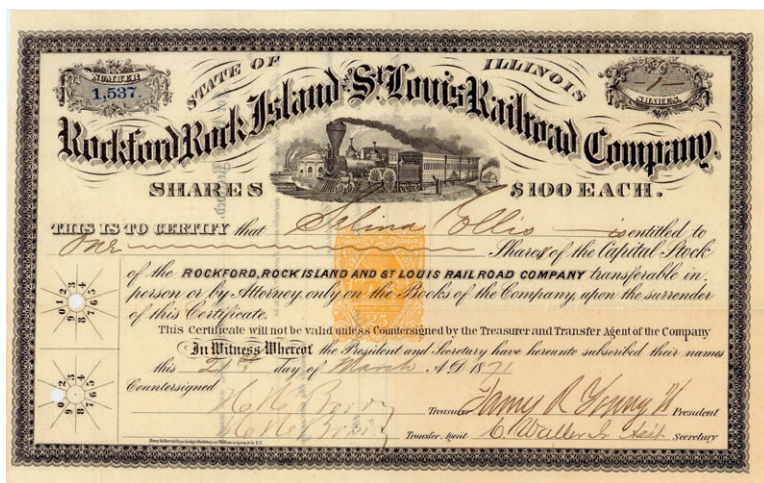 NUMBER
1,537.
STATE OF ILLINOIS
-1-
SHARES
Rockford Rock Island and St. Louis Railroad Company.
SHARES $100 EACH.
THIS IS TO CERTIFY that Selina Collis is entitled to
One Shares of the Capital Stock
of the ROCKFORD, ROCK ISLAND AND ST LOUIS RAIL ROAD COMPANY transferable in
person or by Attorney only on the Books of the Company, upon the surrender
of this Certificate.
25
This Certificate will not be valid unless Countersigned by the Treasurer and Transfer Agent of the Company
In Witness Whereof the President and Secretary have hereunto subscribed their names
this 21st day of March A.D. 1871
Countersigned
Treasurer
President
Transfer Agent
Secretary
0 1 2 3 4 5 6 7 8 9
0 1 2 3 4 5 6 7 8 9